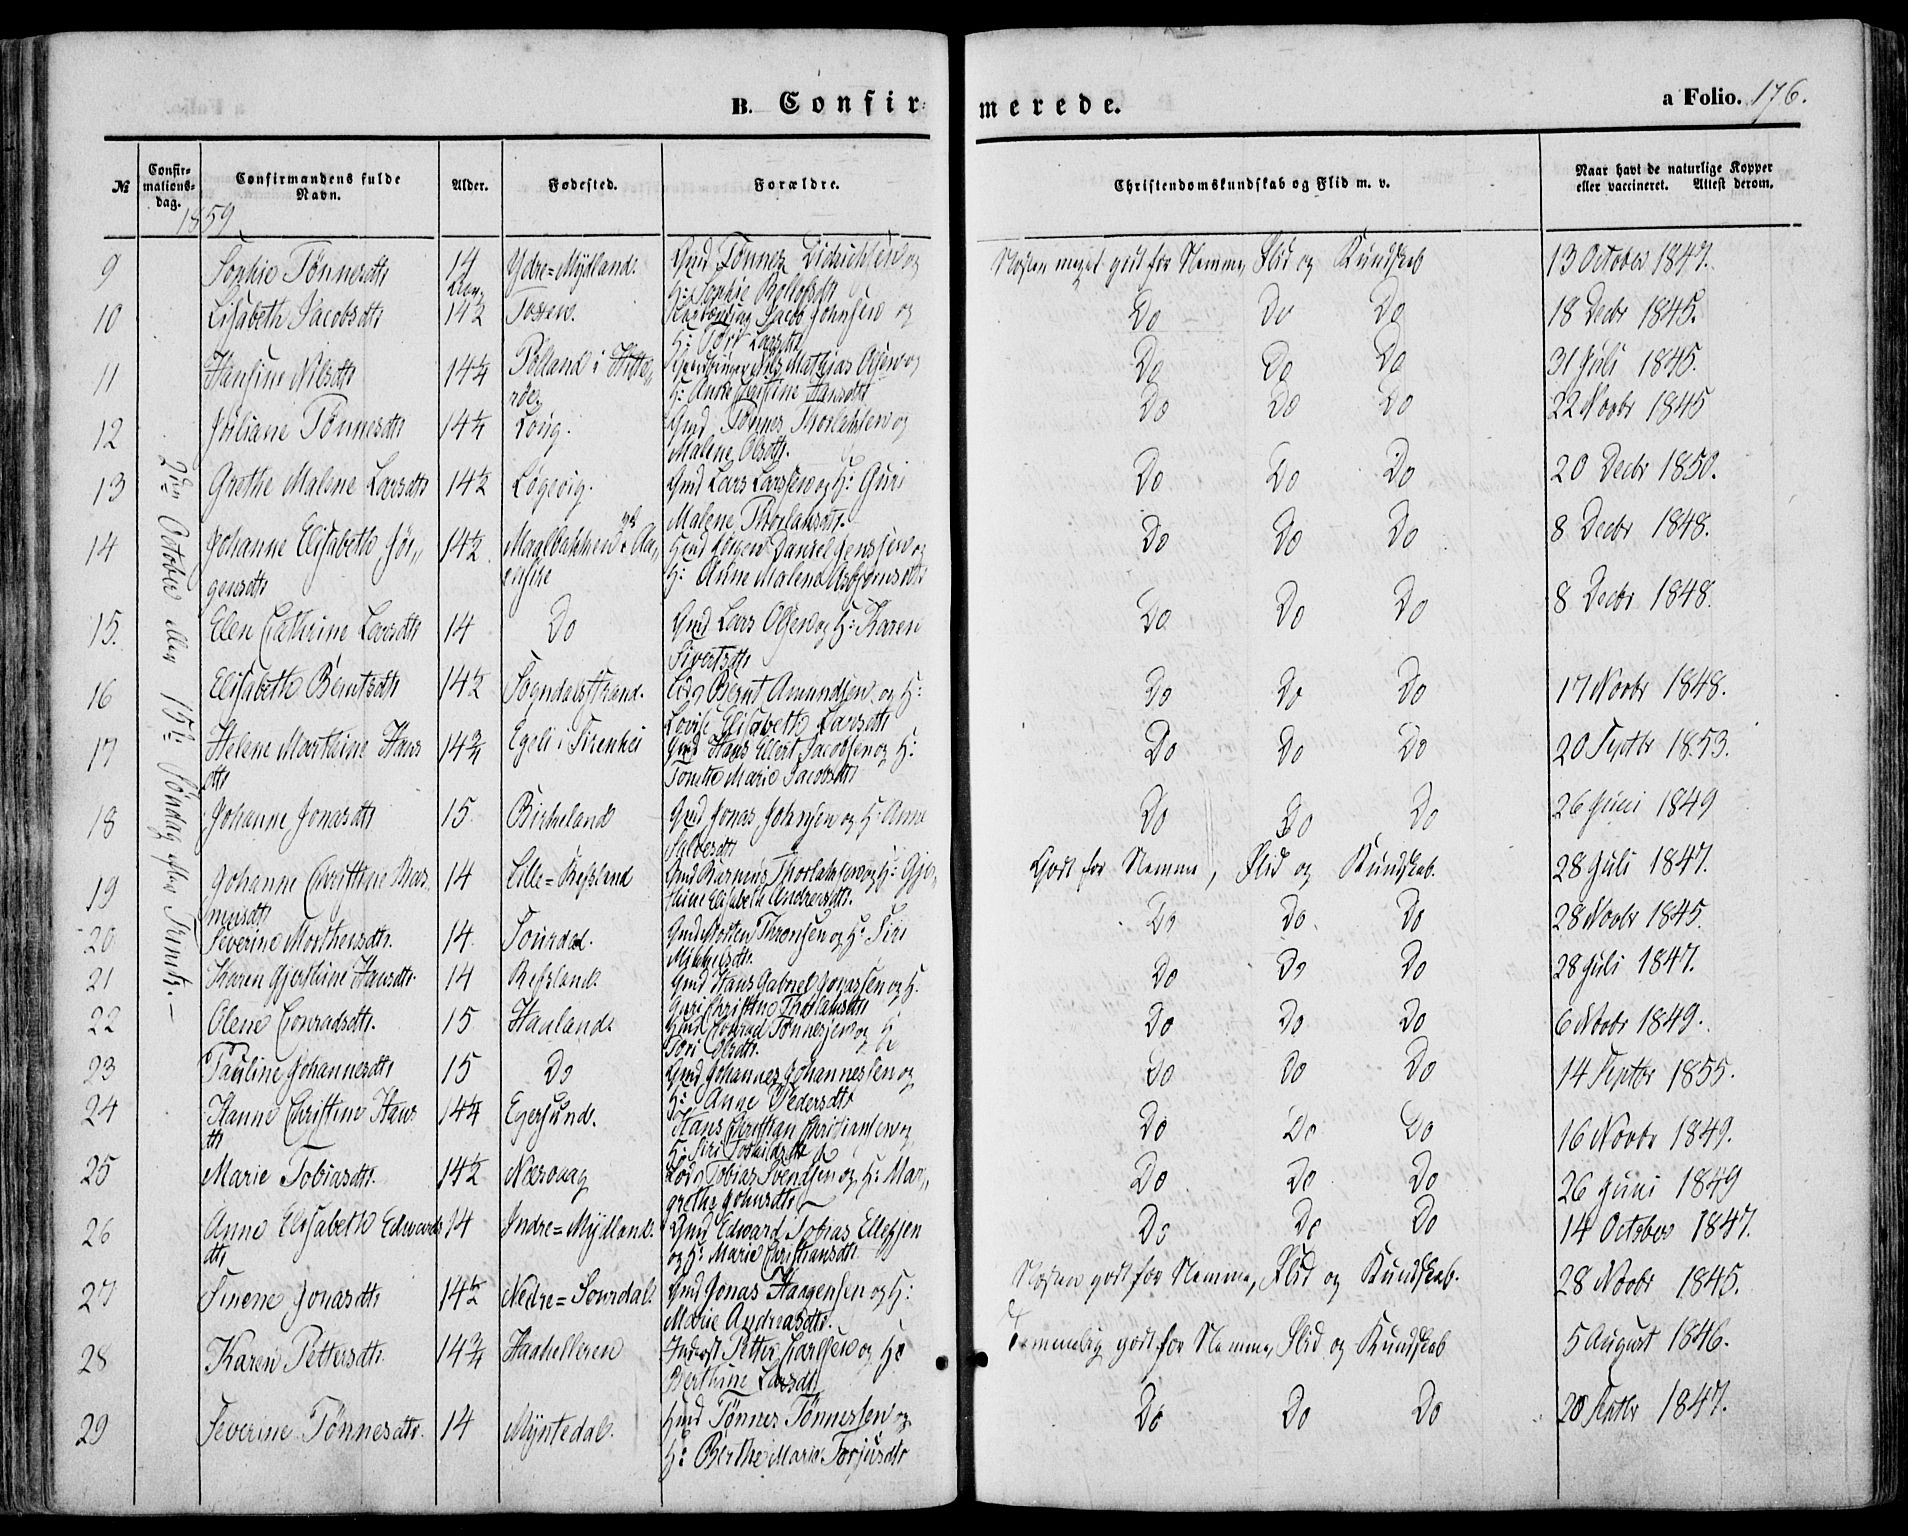 B. Confir-
merede.
a Folio. 176.
№
Confir-
mations-
dag.
Confirmandens fulde
Navn.
Alder.
Fødested.
Forældre.
Christendomskundskab og Flid m. v.
Naar havt de naturlige Kopper
eller vaccineret. Attest derom.
1859
2den October eller 15de Søndag efter Trinit. –
9 Sophie Tønnesdtr 14 Ydre=Mydland. Gmd Tønnes Didrichsen og
Aar H: Sophie
Næsten meget godt for Nemme, Flid og Kundskab 13 October 1847.
10 Lisabeth Jacobsdtr 14½ Jacob Johnsen og
H: Larsdtr
Do Do Do 18 Decbr 1845.
11 Hansine Nilsdtr 14¼ i Hitte,, Nils Mathias Olsen og
røe H: Anne Christine Hansdtr
Do Do Do 31 Juli 1845.
12 Juliane Tønnesdtr 14¼ Gmd Tønnes Thorlaksen og
Malene Olsdtr.
Do Do Do 22 Novbr 1845
13 Grethe Malene Larsdtr 14½ Løgevig. Gmd Lars Larssen og H: Guri
Malene Thorlaksdtr.
Do Do Do 20 Decbr 1850.
14 Johanne Elisabeth Jør,, 14½ Jørgen Daniel Jenssen og
gensdtr H: Anne Malene Asbjørnsdtr
Do Do Do 8 Decbr 1848.
15. Elen Cathrine Larsdtr 14 Do Gmd Lars Olsen og H: Karen
Sivertsdtr
Do Do Do 8 Decbr 1848.
16 Elisabeth Berntsdtr 14½ Sogndalsstrand. Lods Bernt Amundsen og H:
Lovise Elisabeth Larsdtr
Do Do Do 17 Novbr 1848.
17 Helene Marthine Hans 14¾ Egeli i Sirenhei Gmd Hans Ellert Jacobsen og H:
dtr Tonette Marie Jacobsdtr
Do Do Do 20 Septbr 1853.
18 Johanne Jonasdtr 15. Birkeland Gmd Jonas Johnsen og H: Anne
Salvesdtr
Do Do Do 26 Juni 1849
19 Johanne Christine Ras 14 Lille=Refsland Gmd Rasmus Thorlaksen og H: Gjer,,
musdtr thine Elisabeth Andreasdtr.
Godt for Nemme, Flid og Kundskab. 28 Juli 1847.
20 Severine Morthensdtr. 14. Sourdal. Gmd Morten Thronsen og H: Siri
Mikkelsdtr.
Do Do. Do 28 Novbr 1845.
21 Karen Gjerthine Hansdtr. 14 Refsland. Gmd Hans Gabriel Jonassen og H.
Guri Christine Thorlaksdtr
Do Do Do 28 Juli 1847.
22 Olene Conradsdtr. 15 Haaland. Hmd Conrad Tønnessen og H
Tori Olsdtr.
Do Do Do 6 Novbr 1849.
23 Pauline Johannesdtr 15 Do Gmd Johannes Johannessen og
H: Anne Pedersdtr
Do Do Do 14 Septbr 1855.
24 Hanne Christine Hans 14¼ Egersund. Hans Christian Christiansen og
dtr H: Siri
Do Do Do 16 Novbr 1849.
25 Marie Tobiasdtr. 14½ Næsvaag Lods Tobias Svendsen og H: Mar,,
grethe Johnsdtr
Do Do Do 26 Juni 1849
26 Anne Elisabeth Edwards 14 Indre=Mydland. Gmd Edward Tobias Ellefsen
dtr og H: Marie Christiansdtr
Do Do Do 14 October 1847.
27 Sinene Jonasdtr 14½ Nedre=Sourdal. Gmd Jonas Haagensen og H:
Marie Andreasdtr.
Næsten godt for Nemme, Flid og Kundskab. 28 Novbr 1845.
28 Karen Pettersdtr. 14¾ Haahelleren Inderst Petter Carlsen og H:
Berthine Larsdtr
Temmelig godt for Nemme, Flid og Kundskab 5 August 1846.
29 Severine Tønnesdtr. 14 Myntedal. Hmd Tønnes Tønnessen og
H: Berthe Marie Torjusdtr
Do Do Do 20 Septbr 1847.